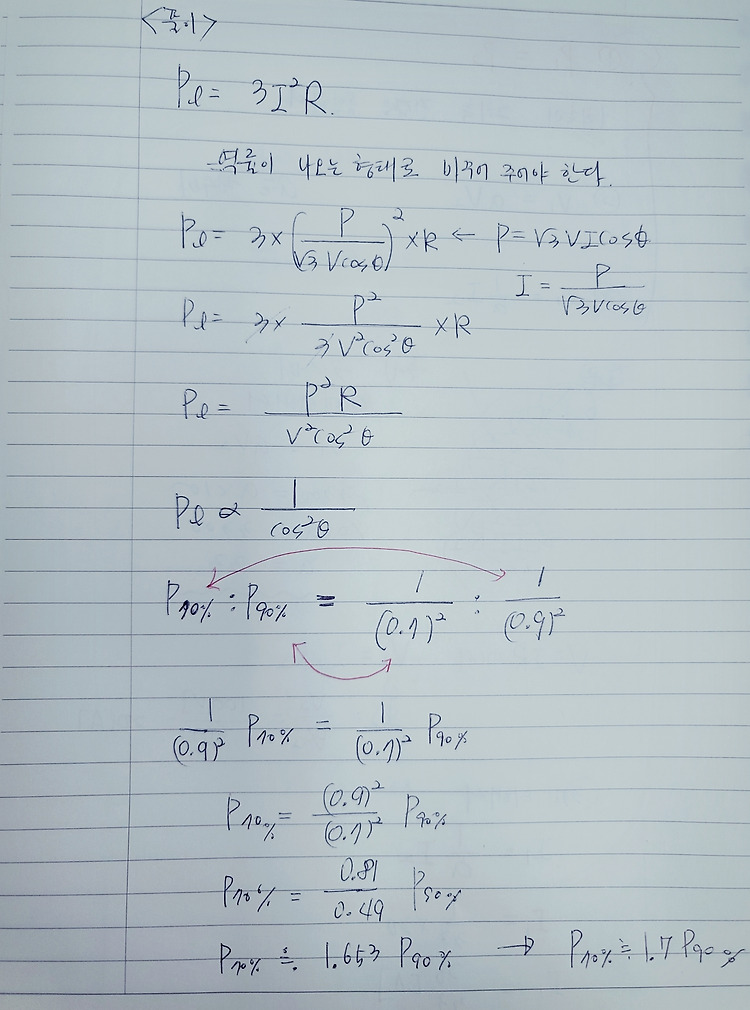 <풀이>
Pℓ = 3I²R.
역률이 나오는 형태로 바꾸어 주어야 한다.
Pℓ = 3 × (P / √3 V cosθ)² × R ← P = √3 VI cosθ
I = P / √3 V cosθ
Pℓ = 3 × P² / 3 V² cos²θ × R
Pℓ = P² R / V² cos²θ
Pℓ ∝ 1 / cos²θ
P70% : P90% = 1 / (0.7)² : 1 / (0.9)²
1 / (0.9)² P70% = 1 / (0.7)² P90%
P70% = (0.9)² / (0.7)² P90%
P70% = 0.81 / 0.49 P90%
P70% ≒ 1.653 P90% → P70% ≒ 1.7 P90%